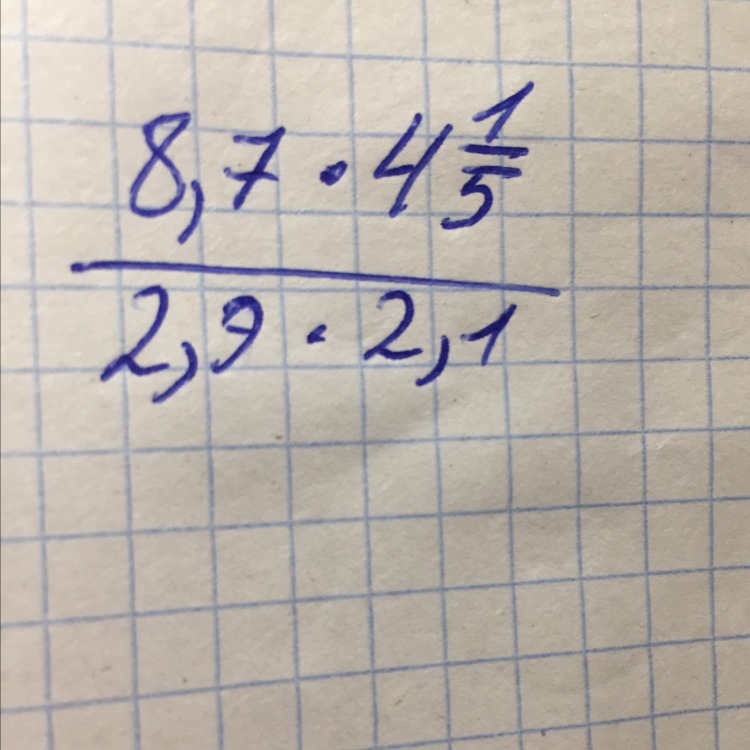 8,7 · 4 1/5
2,9 · 2,1